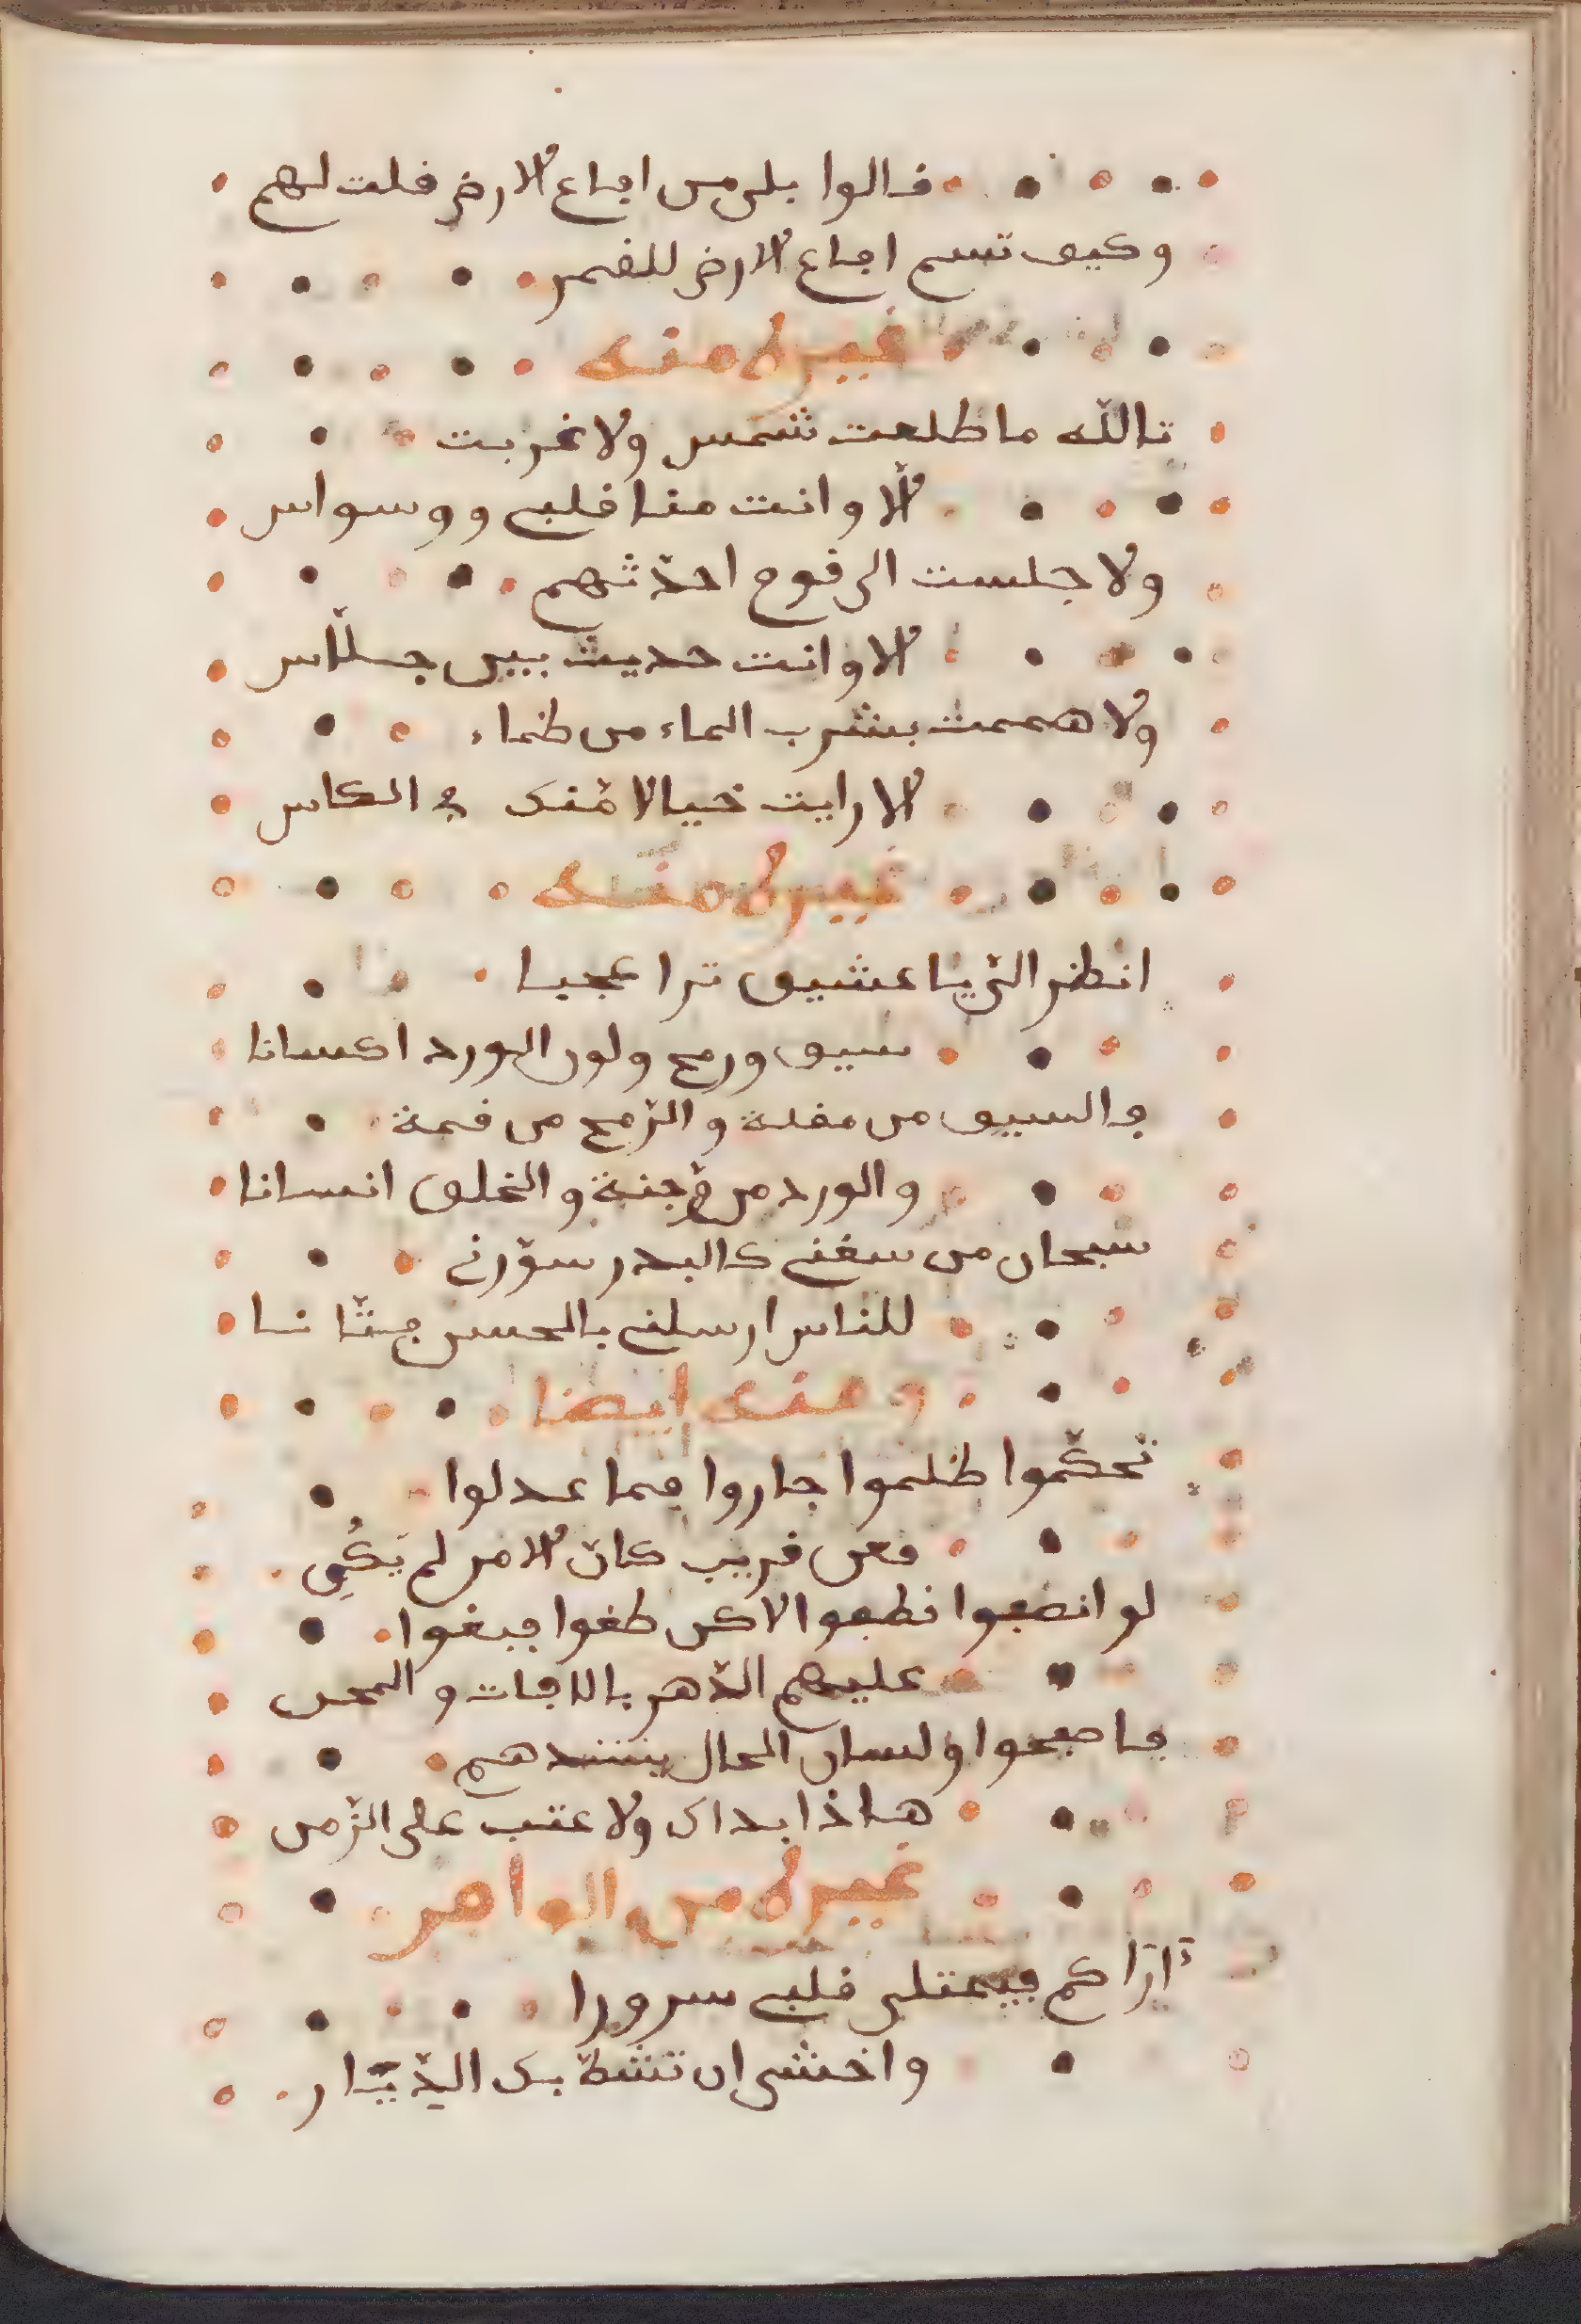 فالوا بلى من افاع الارض فلت لهم
وكيف تسم افاع الارض للفمر
غيره منه
تالله ما طلعت شمس ولا غربت
الا وانت منا فلبي ووسواس
ولا جلست الى فوم احدثهم
الا وانت حديث بين جلاس
ولا هممت بشرب الماء من ظماء
الا رايت خيالا منك في الكاس
غيره منه
انظر الي يا عشيق ترا عجبا
سيف ورمح ولون الورد اكسانا
فالسيف من مفلة والرمح من فمة
والورد من وجنة والخلق انسانا
سبحان من سغني كالبدر سورني
للناس ارسلني بالحسن فتانا
ومنه ايضا
تحكموا ظلموا جاروا فما عدلوا
فعن فريب كان الامر لم يكن
لو انصفوا نطفوا لاكن طغوا فبغوا
عليهم الدهر بالافات والمحن
فاصبحوا ولسان الحال ينشدهم
هاذا بداك ولا عتب على الزمن
غيره من الوافر
اراكم فيمتلى فلبي سرورا
واخشى ان تشط بك الديار